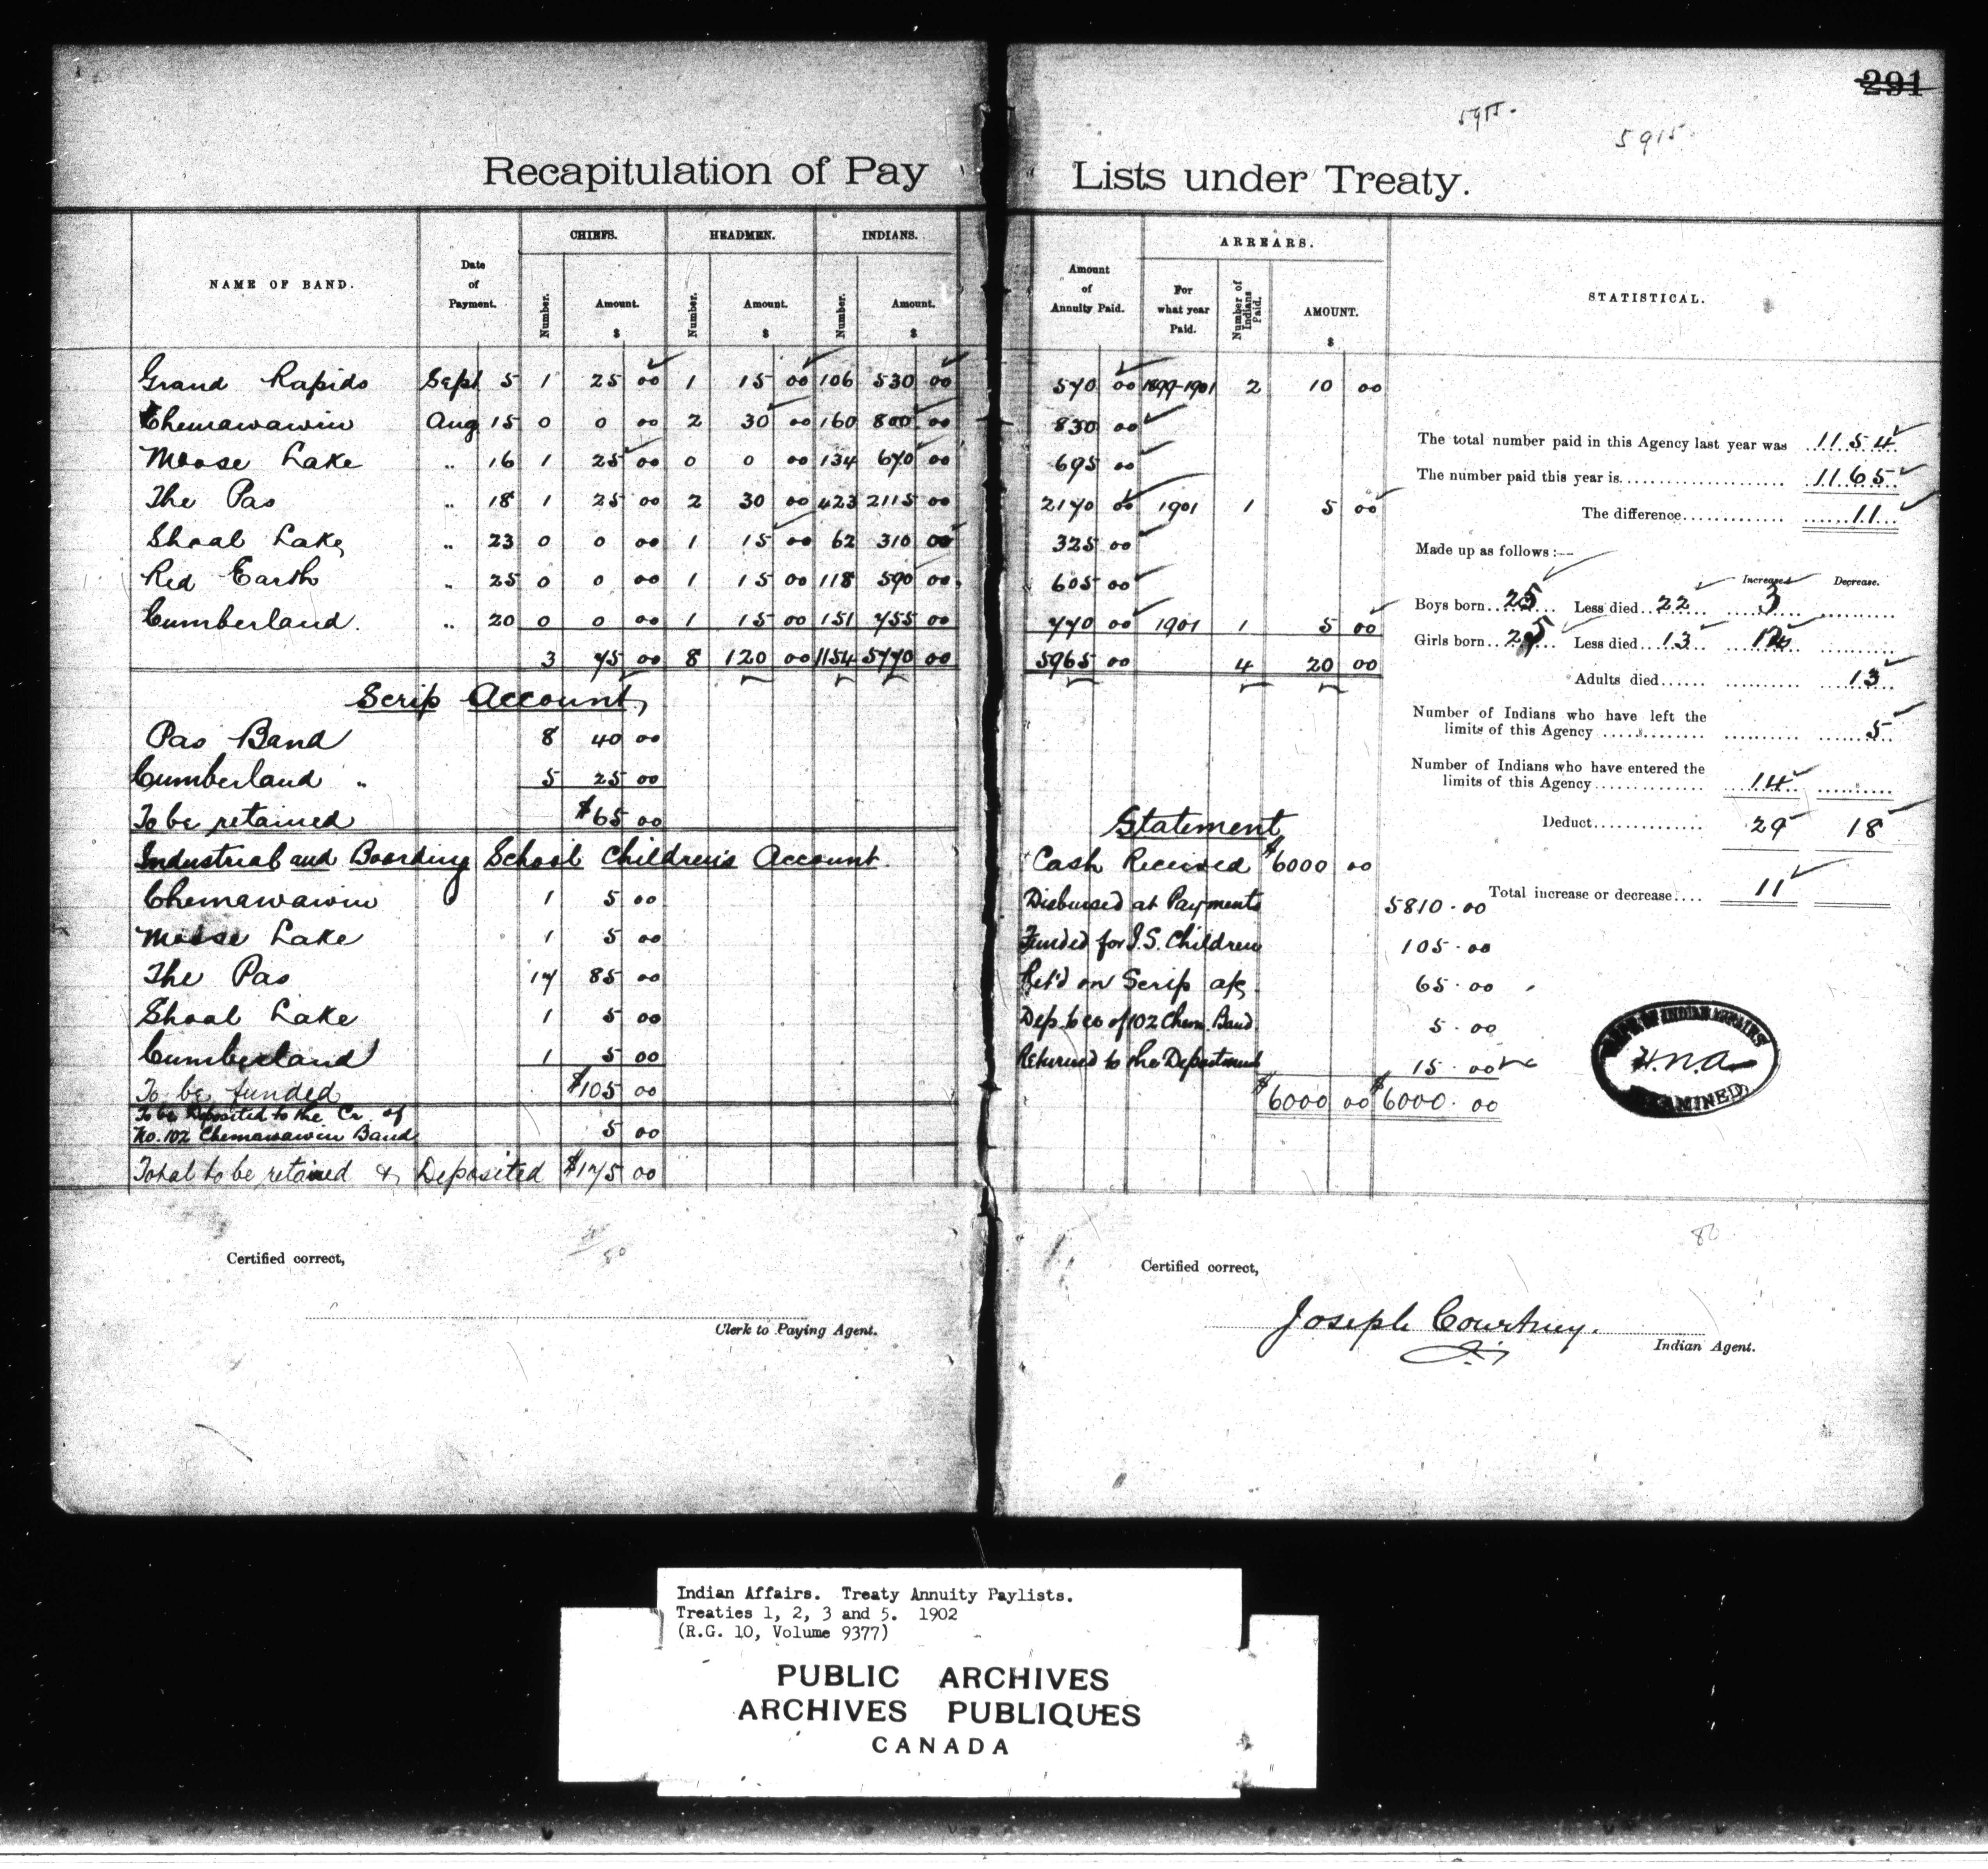 291
5915.
Recapitulation of Pay Lists under Treaty.
NAME OF BAND.
Date of Payment.
CHIEFS.
HEADMEN.
INDIANS.
Number.
Amount.
$
Number.
Amount.
$
Number.
Amount.
$
Amount of Annuity Paid.
ARREARS.
For what year Paid.
Number of Indians Paid.
AMOUNT.
$
STATISTICAL.
Grand Rapids Sept 5 1 25 00 1 15 00 106 530 00 570 00 1899-1901 2 10 00
Chemawawin Aug 15 0 0 00 2 30 00 160 800 00 830 00
Moose Lake " 16 1 25 00 0 0 00 134 670 00 695 00
The Pas " 18 1 25 00 2 30 00 423 2115 00 2170 00 1901 1 5 00
Shoal Lake " 23 0 0 00 1 15 00 62 310 00 325 00
Red Earth " 25 0 0 00 1 15 00 118 590 00 605 00
Cumberland. " 20 0 0 00 1 15 00 151 755 00 770 00 1901 1 5 00
3 75 00 8 120 00 1154 5770 00 5965 00 4 20 00
Scrip Account,
Pas Band 8 40 00
Cumberland " 5 25 00
To be retained $65 00
Industrial and Boarding School Children's Account.
Chemawawin 1 5 00
Moose Lake 1 5 00
The Pas 17 85 00
Shoal Lake 1 5 00
Cumberland 1 5 00
To be funded $105 00
To be Deposited to the Cr. of
No. 102 Chemawawin Band 5 00
Total to be retained & Deposited $175 00
The total number paid in this Agency last year was 1154
The number paid this year is 1165
The difference 11
Made up as follows:—
Increase. Decrease.
Boys born 25 Less died 22 3
Girls born 25 Less died 13 12
Adults died 13
Number of Indians who have left the
limits of this Agency 5
Number of Indians who have entered the
limits of this Agency 14
Deduct 29 18
Total increase or decrease 11
Statement
Cash Received $6000 00
Disbursed at Payments 5810.00
Funded for I.S. Children 105.00
Ret'd on Scrip a/c 65.00
Dep. to Cr. of 102 Chem. Band 5.00
Returned to the Department 15.00
$6000 00 $6000.00
DEPT. OF INDIAN AFFAIRS
H.N.A.
EXAMINED
Certified correct,
Clerk to Paying Agent.
80
Certified correct,
Joseph Courtney.
Indian Agent.
Indian Affairs. Treaty Annuity Paylists.
Treaties 1, 2, 3 and 5. 1902
(R.G. 10, Volume 9377)
PUBLIC ARCHIVES
ARCHIVES PUBLIQUES
CANADA